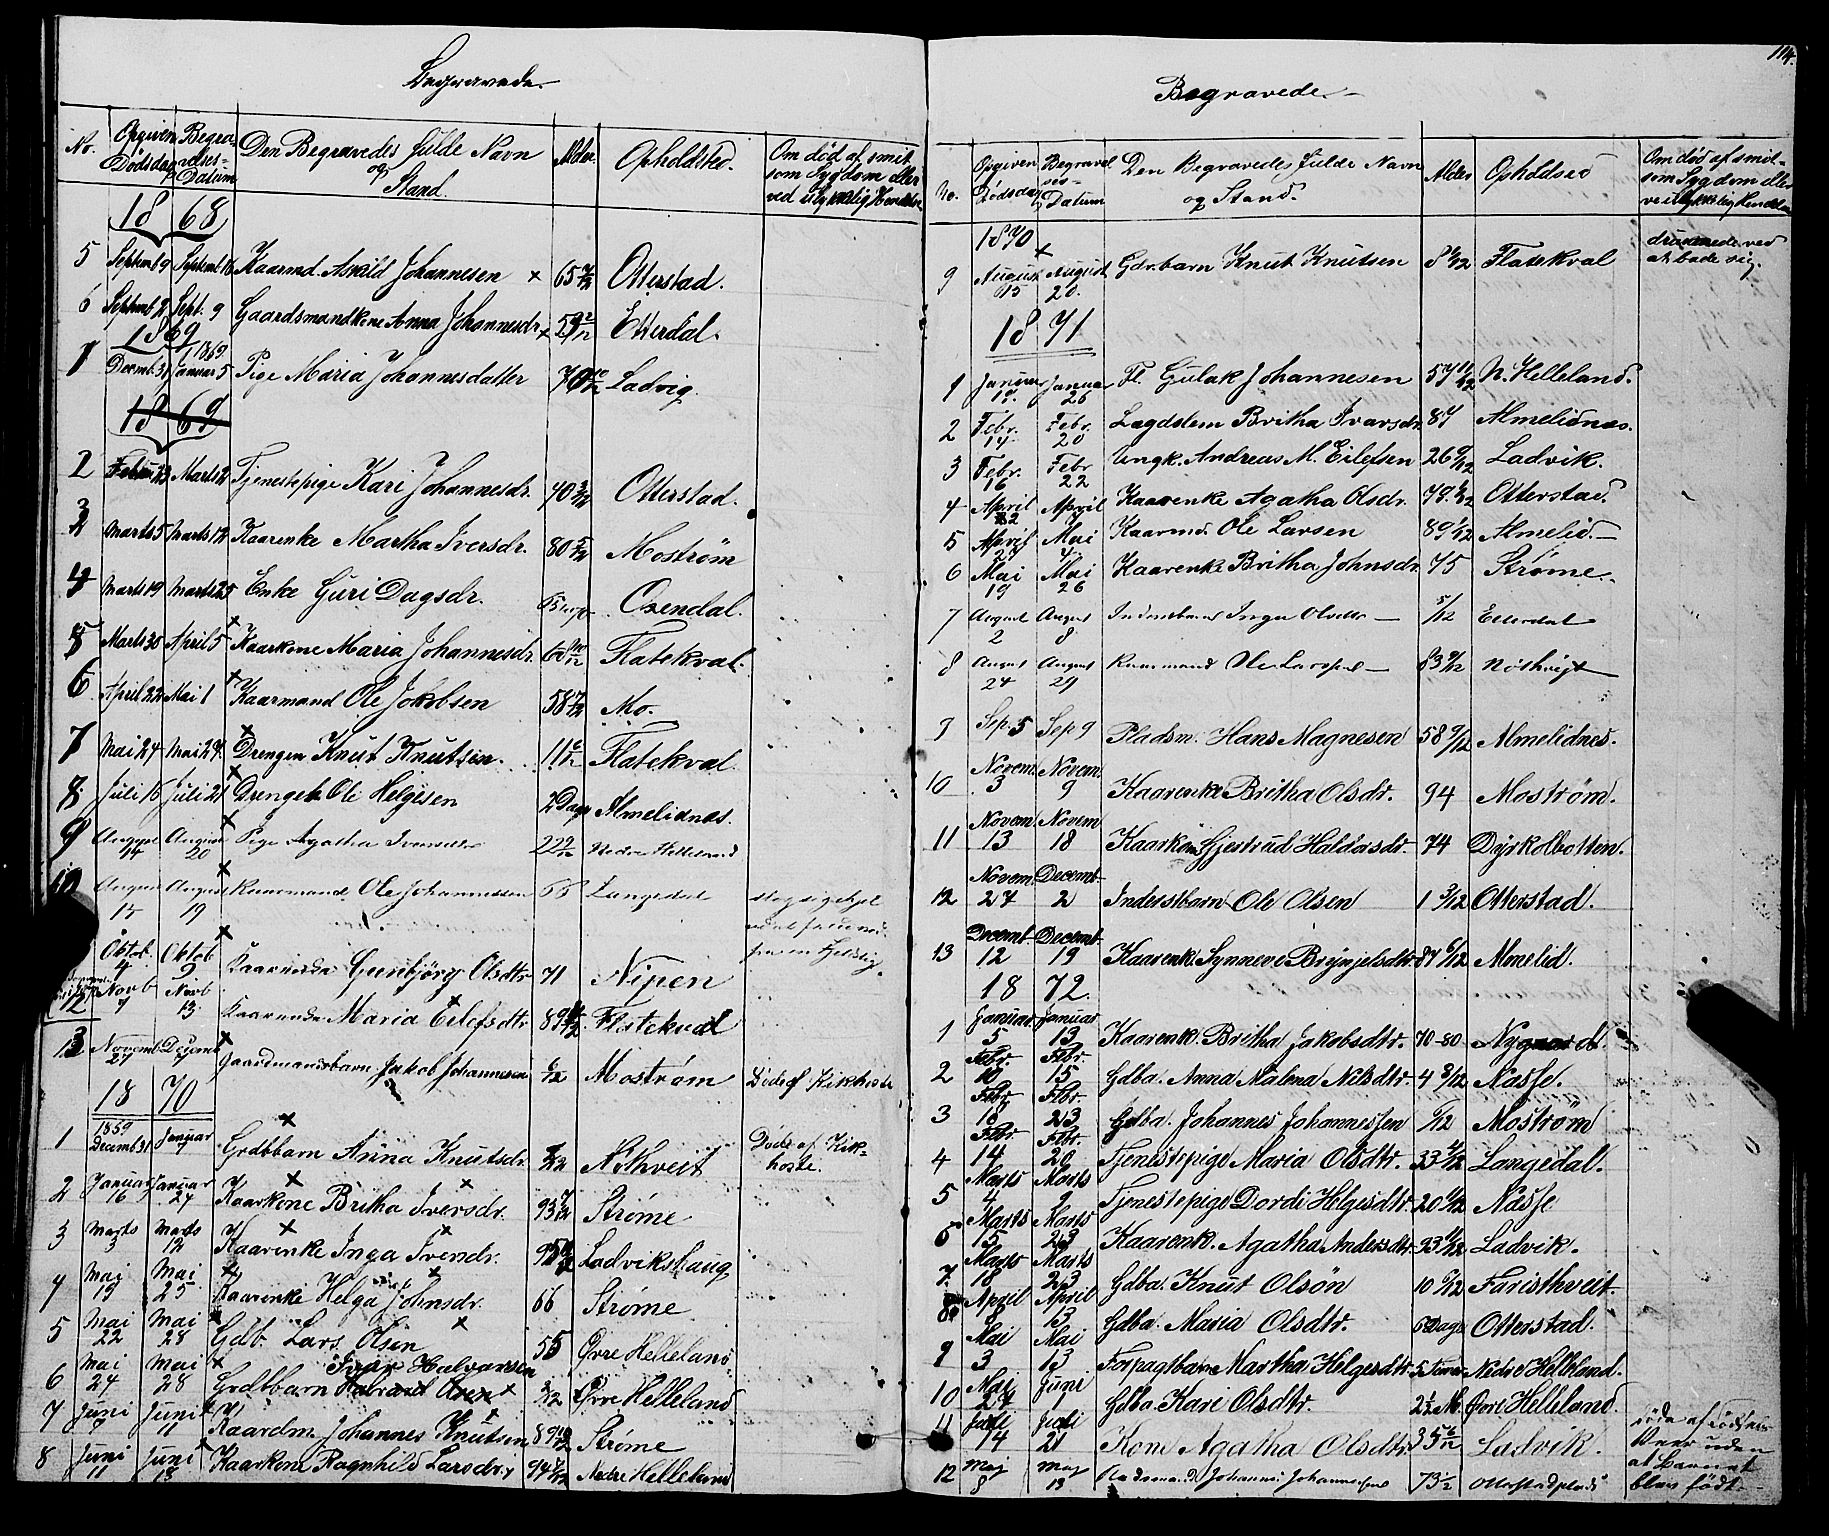 Begravede.
No.
Opgiven Dødsdag
Begravelses-Datum
Den Begravedes fulde Navn og Stand.
Alder.
Opholdsted.
Om død af smitsom Sygdom eller ved ulykkelig Hændelse
18 68
5 Septemb 9 Septemb 16 Kaarmd. Askild Johannesen × 65 Otterstad.
6 Septemb 2 Sept. 9 Gaardsmandkone Anna Johannesdr × 59 2/12 Etterdal.
1869
1 Decemb. 31 Januar 5 1869 Pige Maria Johannesdatter 70 10/12 Ladvig.
18 69
2 Febru 23 Marts 2 Tjenestepige Kari Johannesdr. 40 3/12 Otterstad.
3 Marts 5 Marts 12 Kaarenke Martha Iversdr. 80 Mostrøm
4 Marts 19 Marts 25 Enke Guri Dagsdr. Oxendal.
5 Marts 30 April 5 × Kaarkone Maria Johannesdr. 60 Flatekval.
6 April 22 Mai 1 × Kaarmand Ole Jakobsen 58 7/12 Mo.
7 Mai 24 Mai 29 × Drengen Knut Knutsen 11 Flatekval.
8 Juli 16 Juli 21 × Drengeb. Ole Helgesen 2 Dage Almelidnæs.
9 August 14 August 20 × Pige Agatha Iversdtr 22 9/12 Nedre Helleland
10 August 15 August 19 × Kaarmand Ole Johannessen 66 Langedal
Oktob. 4 Oktob 9 × Kaarenke Gunbjörg Olsdtr 71 Nipen
12 Novb 7 Novb 13. Kaarenke Maria Eilefsdtr × 89 Flatekval
13 Novemb 27 Decemb × Gaardmandsbarn Jakob Johannesen 6/12 Mostrøm Døde af Kikhoste
18 70
1 1859 Decemb 31 Januar 7 × Grdbbarn Anna Knutsdr. Nethveit Døde af Kik-hoste.
2 Januar 16 Januar 24 × Kaarkone Britha Iversdr. × 93 Strøme
3 Marts 3 Marts 12 × Kaarenke Inga Ivensdr. × Ladvikshaug
4 Mai 19 Mai 25 × Kaarenke Helga Johnsdr. × 66 Strøme
5 Mai 22 Mai 28 × Gdb. Lars Olsen × 55 Øvre Helleland
6 Mai 24 Mai 28 × Grdbbarn Ivar Halvorsen × Øvre Helleland
7 Juni 7 Juni 11 × Kaardm. Johannes Knutsen 89 Strøme
8 Juni 11 Juni 18 × Kaarkone Ragnhild Larsdr. 94 Nedre Helleland
114.
Begravede.
No.
Opgiven Dødsdag
Begravelses-Datum
Den Begravedes fulde Navn og Stand.
Alder
Opholdsed
Om død af smitsom Sygdom eller ved ulykkelig Hændelse
1870
9 August 15 August 20. × Gdrbarn Knut Knutsen 8 Flatekval druknede ved at bade sig.
18 71
1 Januar 19. Janua 26 Fl. Gulak Johannesen 57 11/12 N. Helleland.
2 Febr. 14. Febr. 20 Lægdslem Britha Ivarsdr. 87 Almelidnæs.
3 Febr. 16 Febr 22 Ungk. Andreas M. Eilefsen 26 9/12 Ladvik.
4 April 2 April 9 Kaarenke Agatha Olsdr. 78 Otterstad.
5 April 27 Mai 4 Kaarmd. Ole Larsen 89 1/12 Almelid.
6 Mai 19 Mai 26 Kaarenke Britha Johnsdr. 75 Strøme.
7 August 2 August 8 Inderstbarn Inger Olsdtr 5/12 Etterdal
8 August 24 August 29 Kaarmand Ole Larssen 83 9/12 Nøthveit
9 Sep. 5 Sep 9 Pladsm. Hans Magnesen 58 9/12 Almelidnes.
10 Novem. 3 Novem. 9 Kaarenke Britha Olsdr. 94 Mostrøm.
11 Novem. 13 Novem 18 Kaarkone Gjertrud Haldorsdr. 74 Dyrkolbotten.
12 Novem. 27 Decemb. 2 Inderstbarn Ole Olsen 1 3/12 Otterstad.
13 Decemb 12 Decemb 19 Kaarenk. Synneve Brynjelsdtr. 87 6/12 Almelid.
18 72.
1 Januar 5 Januar 13 Kaarenk. Britha Jakobsdtr. 70-80 Nygaard.
2 Febr. 10 Febr. 15 Gdba. Anna Malena Nilsdtr. 4 8/12 Nasse.
3 Febr. 18 Febr. 23 Gdba. Johannes Johannessen 1/12 Mostrøm
4 Febr. 14 Febr. 20 Tjenestepige Maria Olsdtr. 33 Langedal.
5 Marts 4 Marts 9 Tjenestepige Dordi Helgesdtr. 20 Nasse
6 Marts 15 Marts 23 Kaarenk. Agatha Andersdtr. 93 Ladvik.
7. Marts 18 Marts 23 Gdba. Knut Olsön 10 Faristhveit.
8 April 8 April 13 Gdba. Maria Olsdtr. Dage Otterstad.
9 Mai 3 Mai 13 Forpagtbarn Martha Helgesdtr. 5 Timer Nedre Helleland.
10 Mai 24 Juni 1 Gdba Kari Olsdtr. 2½ M. Øvre Helleland.
11 Juli 14 Juli 21 Kone Agatha Olsdtr 35 6/12 Ladvik. Døde af uden at Barnet blev født.
12 Maj 8 Maj 13 Pladsmand Johannes Johannessen 73½ Otterstadplads